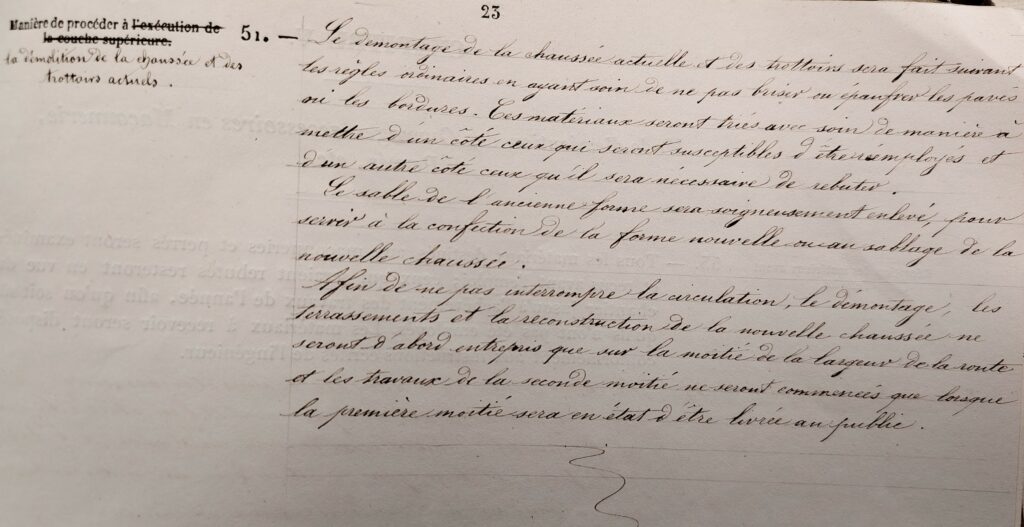 23
Manière de procéder à l'exécution de
la couche supérieure.
la démolition de la chaussée et des
trottoirs actuels.
51. — Le démontage de la chaussée actuelle et des trottoirs sera fait suivant
les règles ordinaires en ayant soin de ne pas briser ou épaufrer les pavés
ni les bordures. Ces matériaux seront triés avec soin de manière à
mettre d'un côté ceux qui seront susceptibles d'être réemployés et
d'un autre côté ceux qu'il sera nécessaire de rebuter.
Le sable de l'ancienne forme sera soigneusement enlevé, pour
servir à la confection de la forme nouvelle ou au sablage de la
nouvelle chaussée.
Afin de ne pas interrompre la circulation, le démontage, les
terrassements et la reconstruction de la nouvelle chaussée ne
seront d'abord entrepris que sur la moitié de la largeur de la route
et les travaux de la seconde moitié ne seront commencés que lorsque
la première moitié sera en état d'être livrée au public.